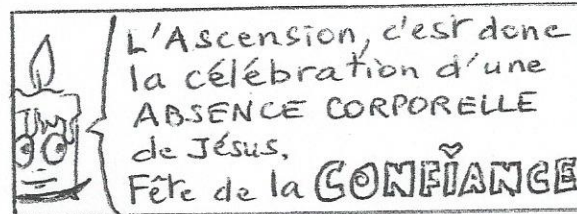 L'Ascension, c'est donc
la célébration d'une
ABSENCE CORPORELLE
de Jésus.
Fête de la CONFIANCE